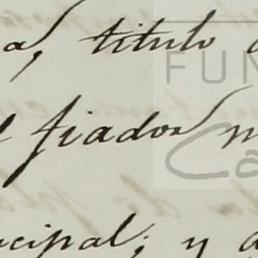 a, titulo
FUN
fiador
Ca
cipal; y